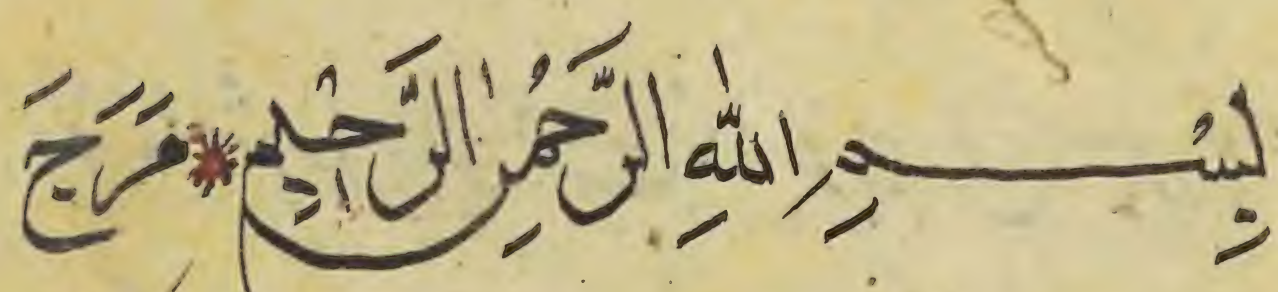 بِسْمِ اللهِ الرَّحْمٰنِ الرَّحِيْمِ * مَرَجَ